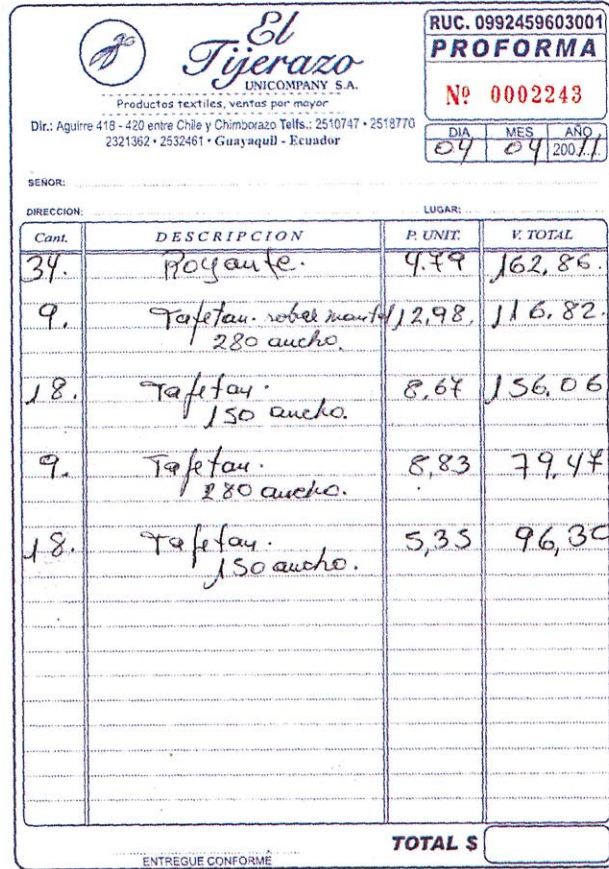 El
Tijerazo
UNICOMPANY S.A.
Productos textiles, ventas por mayor
Dir.: Aguirre 418 - 420 entre Chile y Chimborazo Telfs.: 2510747 • 2518770
2321362 • 2532461 • Guayaquil - Ecuador
RUC. 0992459603001
PROFORMA
Nº 0002243
DIA MES AÑO
04 04 200 11
SEÑOR:
DIRECCION: LUGAR:
Cant. DESCRIPCION P. UNIT. V. TOTAL
34. 4.79 162,86.
9. Tafetan. mantel 12,98. 116.82.
280 ancho.
18. Tafetan. 8,67 156.06
150 ancho.
9. Tafetan. 8,83 79,47
280 ancho.
18. Tafetan. 5,35 96,30
150 ancho.
TOTAL $
ENTREGUE CONFORME